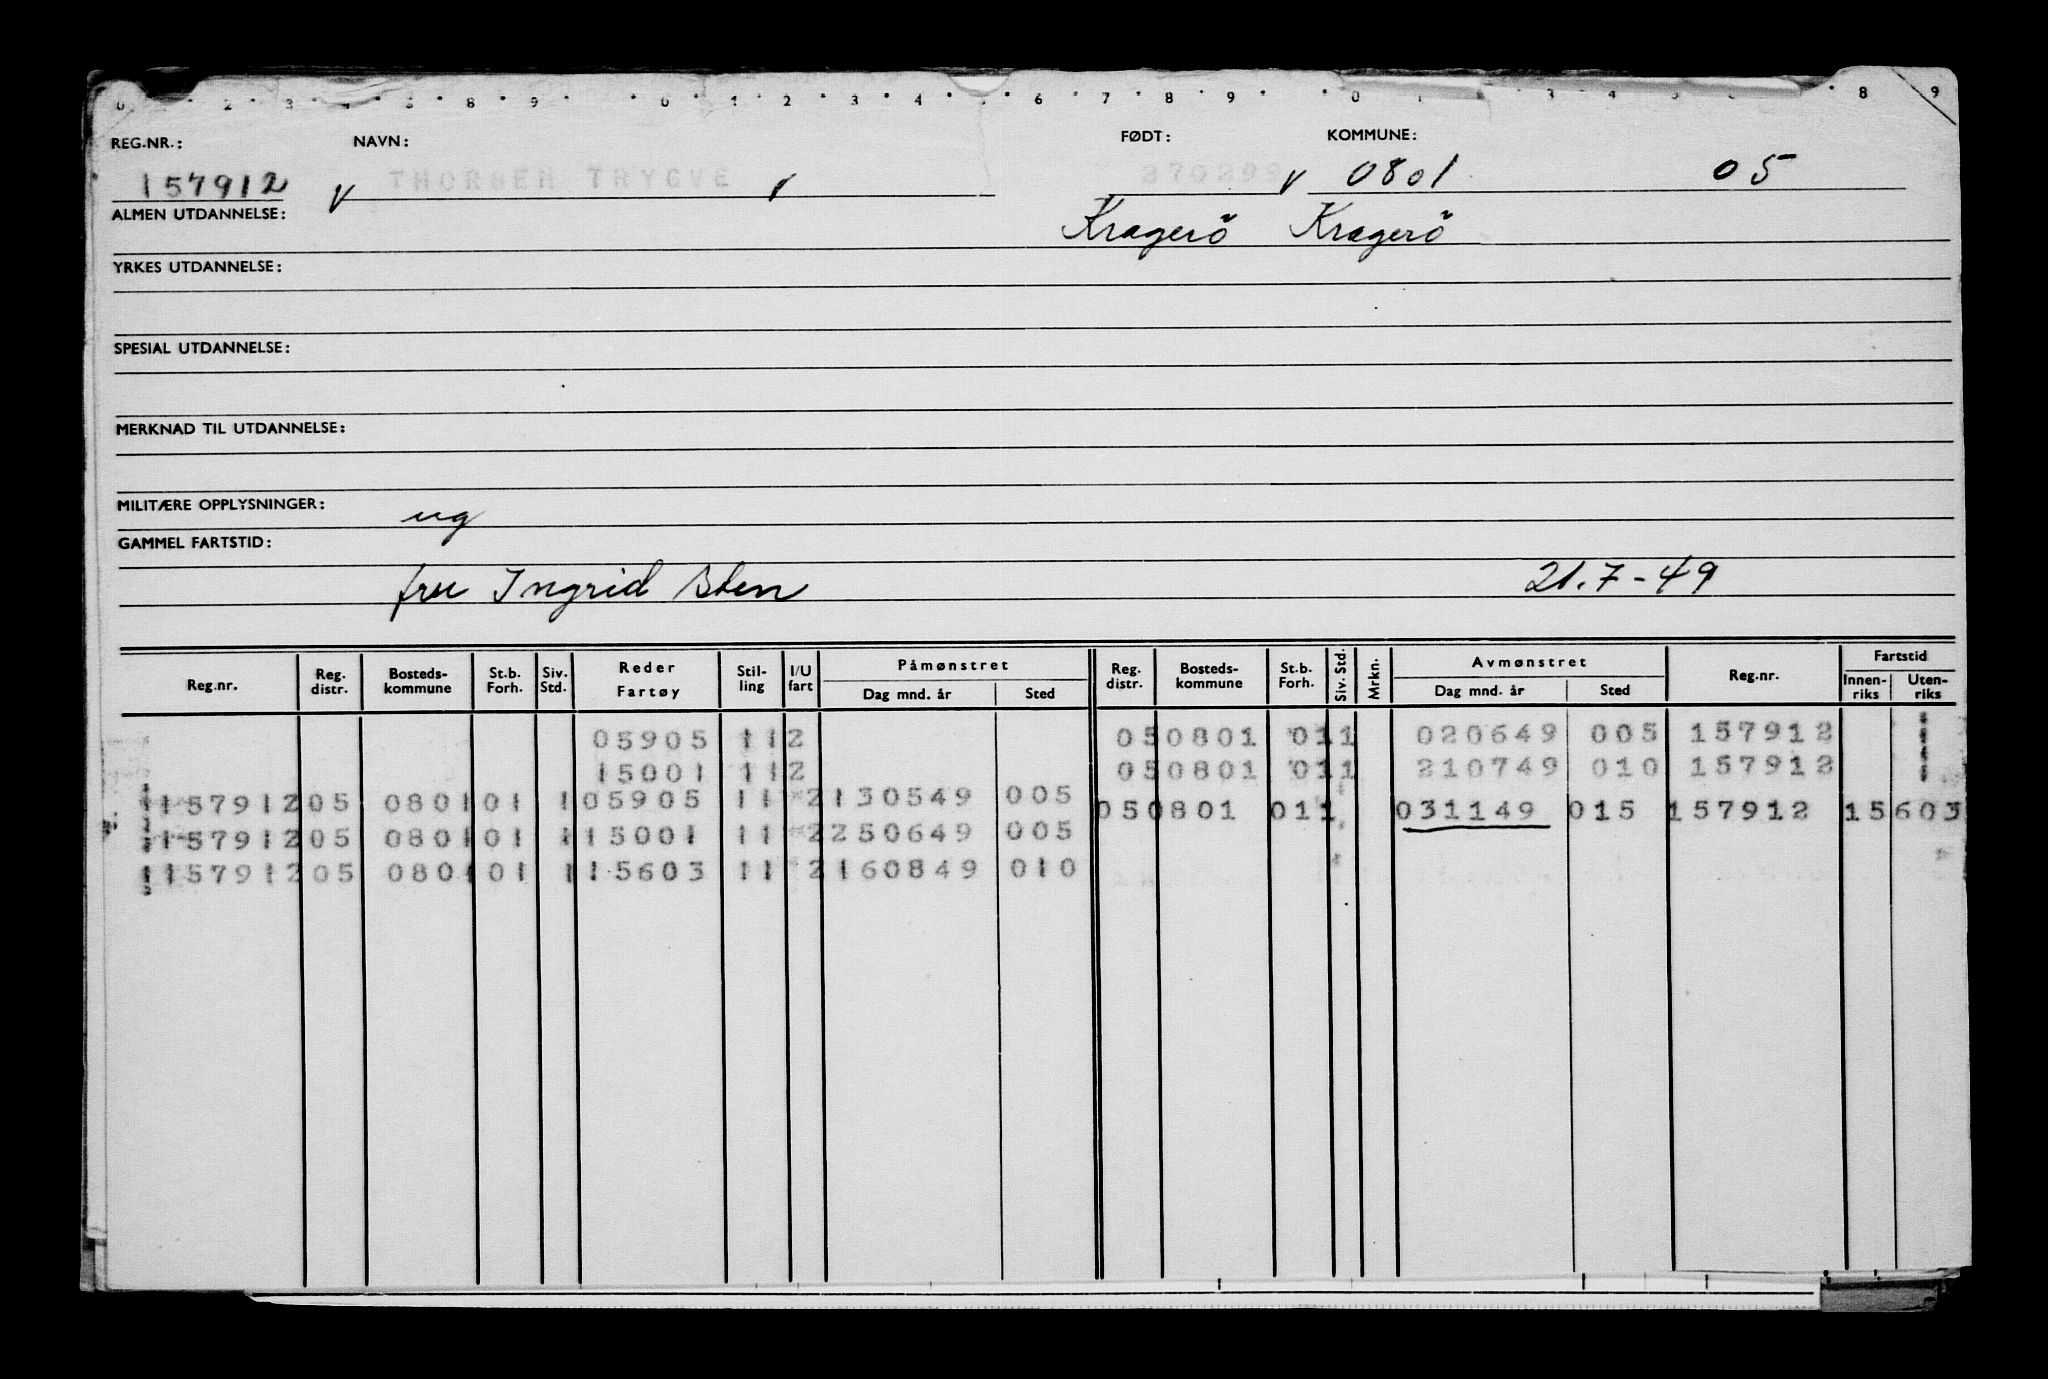 0 2 3 4 5 8 9 0 1 2 3 4 5 6 7 8 9 0 1 3 4 5 8 9
REG.NR.: NAVN: FØDT: KOMMUNE:
157912 THORSEN TRYGVE 270299 0801 05
ALMEN UTDANNELSE: Kragerö Kragerö
YRKES UTDANNELSE:
SPESIAL UTDANNELSE:
MERKNAD TIL UTDANNELSE:
MILITÆRE OPPLYSNINGER: ug
GAMMEL FARTSTID:
fru Ingrid Sten 21.7-49
Reg.nr. Reg. distr. Bosteds- kommune St.b. Forh. Siv. Std. Reder Fartøy Stil- ling I/U fart Påmønstret Dag mnd. år Sted Reg. distr. Bosteds- kommune St.b. Forh. Siv. Std. Mrkn. Avmønstret Dag mnd. år Sted Reg.nr. Fartstid Innen- riks Uten- riks
05905 11 2 05 0801 01 1 020649 005 157912
15001 11 2 05 0801 01 1 210749 010 157912
157912 05 0801 01 1 05905 11 2 130549 005 05 0801 01 1 031149 015 157912 15603
157912 05 0801 01 1 15001 11 2 250649 005
157912 05 0801 01 1 15603 11 2 160849 010